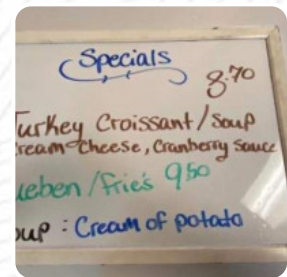 Specials
8.70
Turkey Croissant/Soup
Cream Cheese, Cranberry Sauce
ueben/Fries 9.50
oup: Cream of potato